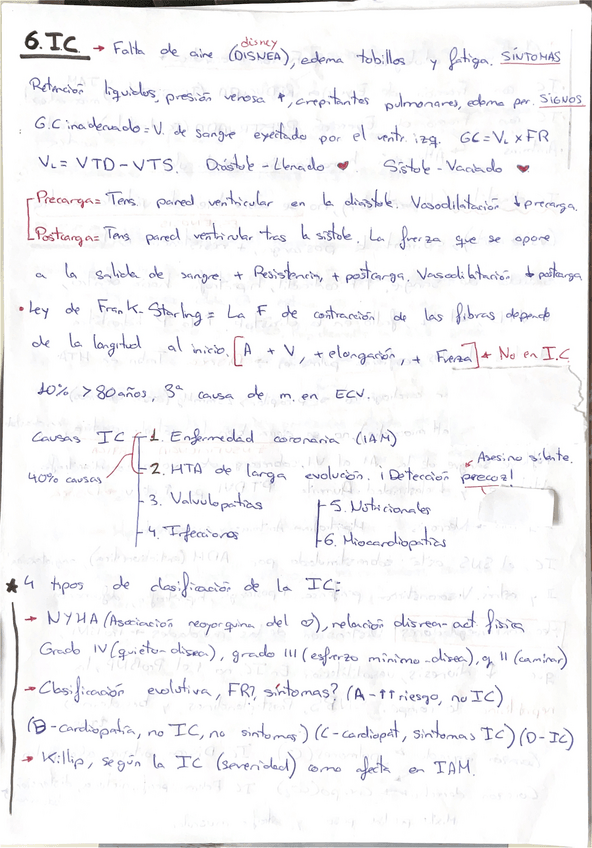 6. I.C. → Falta de aire (DISNEA), edema tobillos y fatiga. SÍNTOMAS
disney
Retención líquidos, presión venosa ↑, crepitantes pulmonares, edema per. SIGNOS
G.C inadecuado = V. de sangre eyectado por el ventr. izq. GC = VL x FR
VL = VTD - VTS. Diástole - Llenado ♥ Sístole - Vaciado ♥
Precarga = Tens. pared ventricular en la diástole. Vasodilatación ↓ precarga.
Postcarga = Tens pared ventricular tras la sístole. La fuerza que se opone
a la salida de sangre, + Resistencia, + postcarga. Vasodilatación ↓ postcarga
• Ley de Frank-Starling = La F de contracción de las fibras depende
de la longitud al inicio. [A + V, + elongación, + Fuerza] * No en I.C
10% > 80 años, 3ª causa de m. en ECV.
Causas IC
40% causas
1. Enfermedad coronaria (IAM)
2. HTA de larga evolución. ¡Detección precoz!
Asesino silente.
3. Valvulopatías
4. Infecciones
5. Nutricionales
6. Miocardiopatías
* 4 tipos de clasificación de la IC:
→ NYHA (Asociación neoyorquina del ♡), relación disnea-act. física
Grado IV (quieto-disnea), grado III (esfuerzo mínimo-disnea), II (caminar)
→ Clasificación evolutiva, FR?, síntomas? (A-↑↑ riesgo, no IC)
(B-cardiopatía, no IC, no síntomas) (C-cardiopat, síntomas IC) (D-IC)
→ Killip, según la IC (severidad) como afecta en IAM.